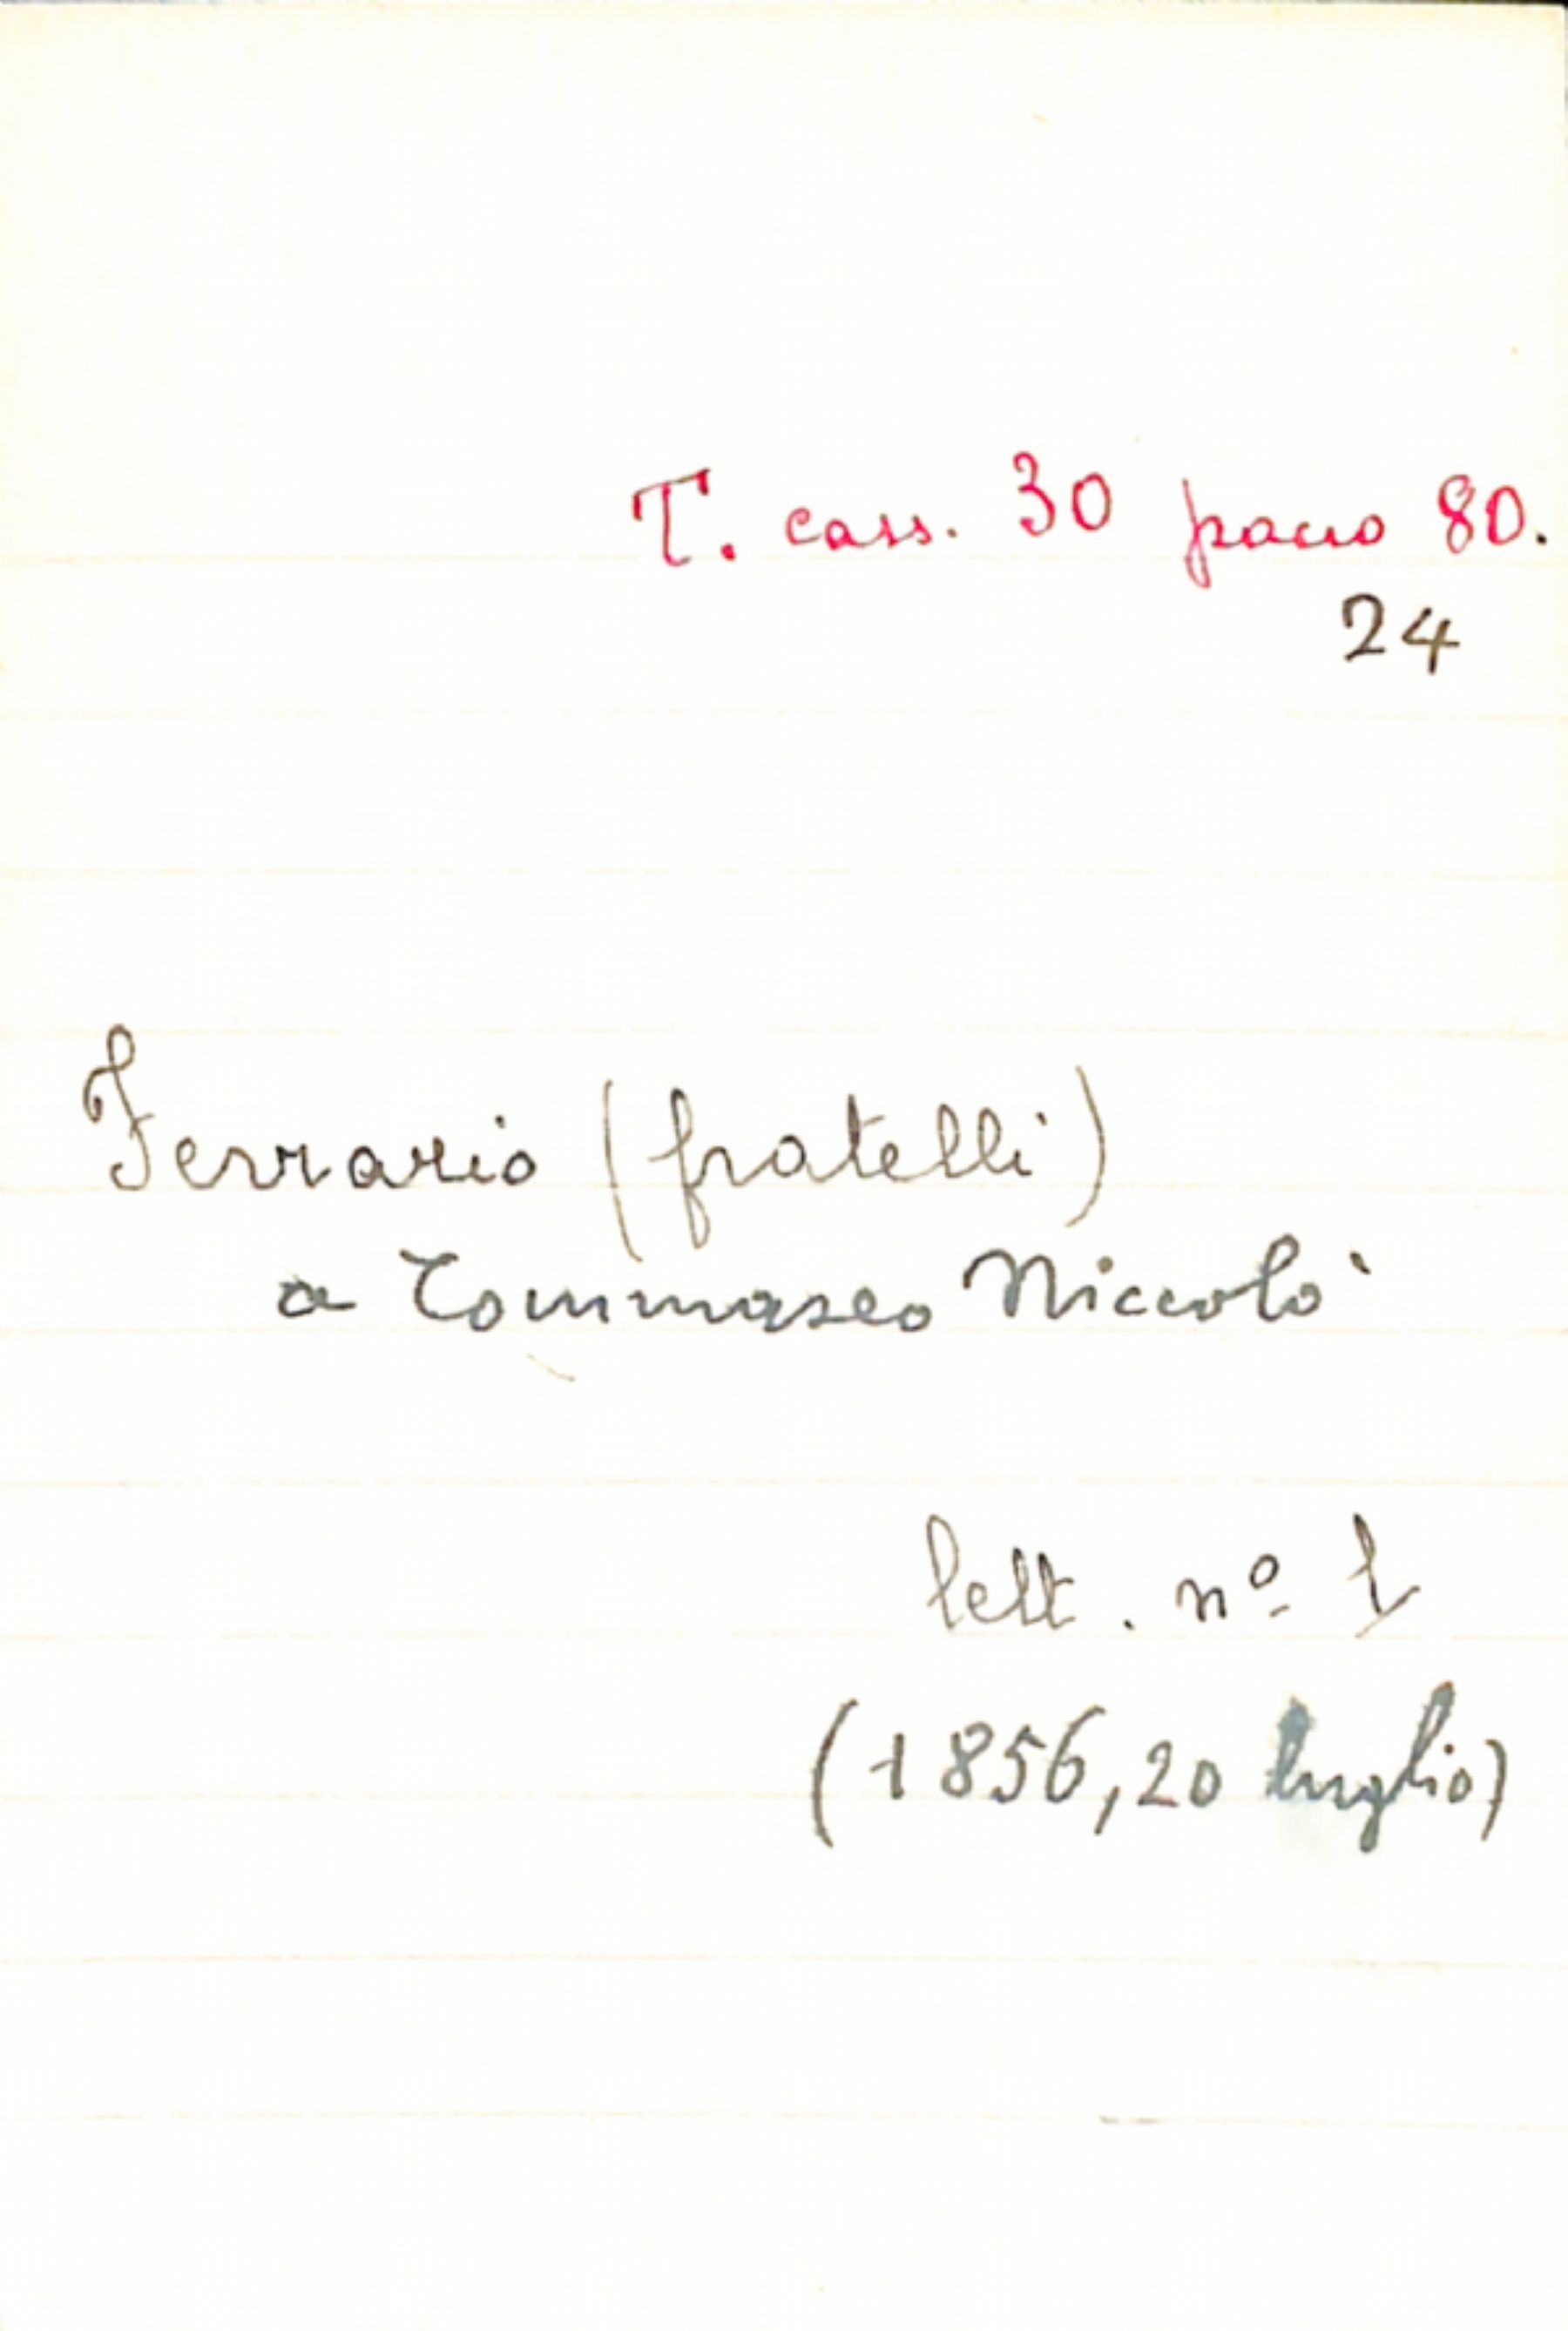 T. cass. 30 pacco 80.
24
Ferrario (fratelli)
a Tommaseo Niccolò
lett. nº 1
(1856, 20 luglio)